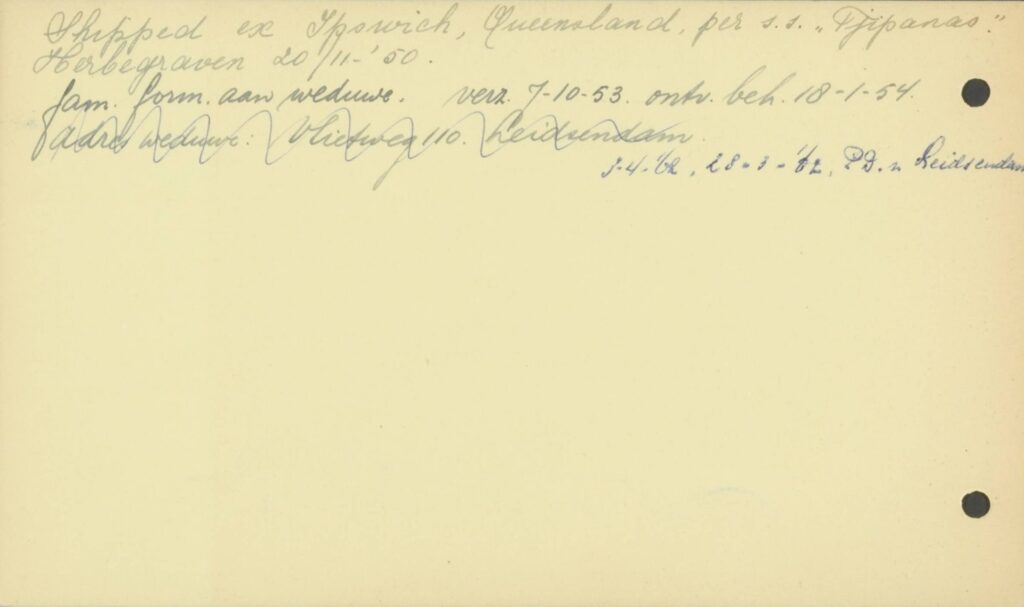 Shipped ex Ipswich, Queensland, per s.s. „Tjipanas".
Herbegraven 20/11-'50.
fam. form. aan weduwe. verz. 7-10-53. ontv. beh. 18-1-54.
adres weduwe: Vlietweg 110. Leidsendam.
3-4-'62, 28-3-'62, P.D. n Leidsendam